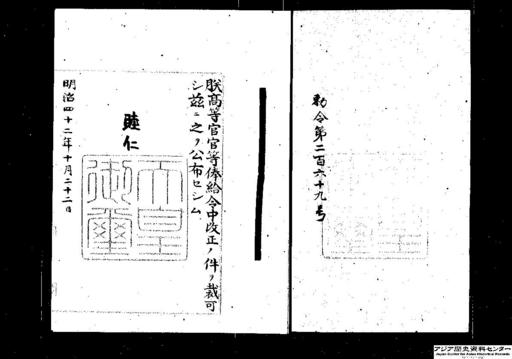 勅令第二百六十九号
朕高等官官等俸給令中改正ノ件ヲ裁可
シ茲ニ之ヲ公布セシム
睦仁
天皇御璽
明治四十二年十月二十二日
アジア歴史資料センター
Japan Center for Asian Historical Records